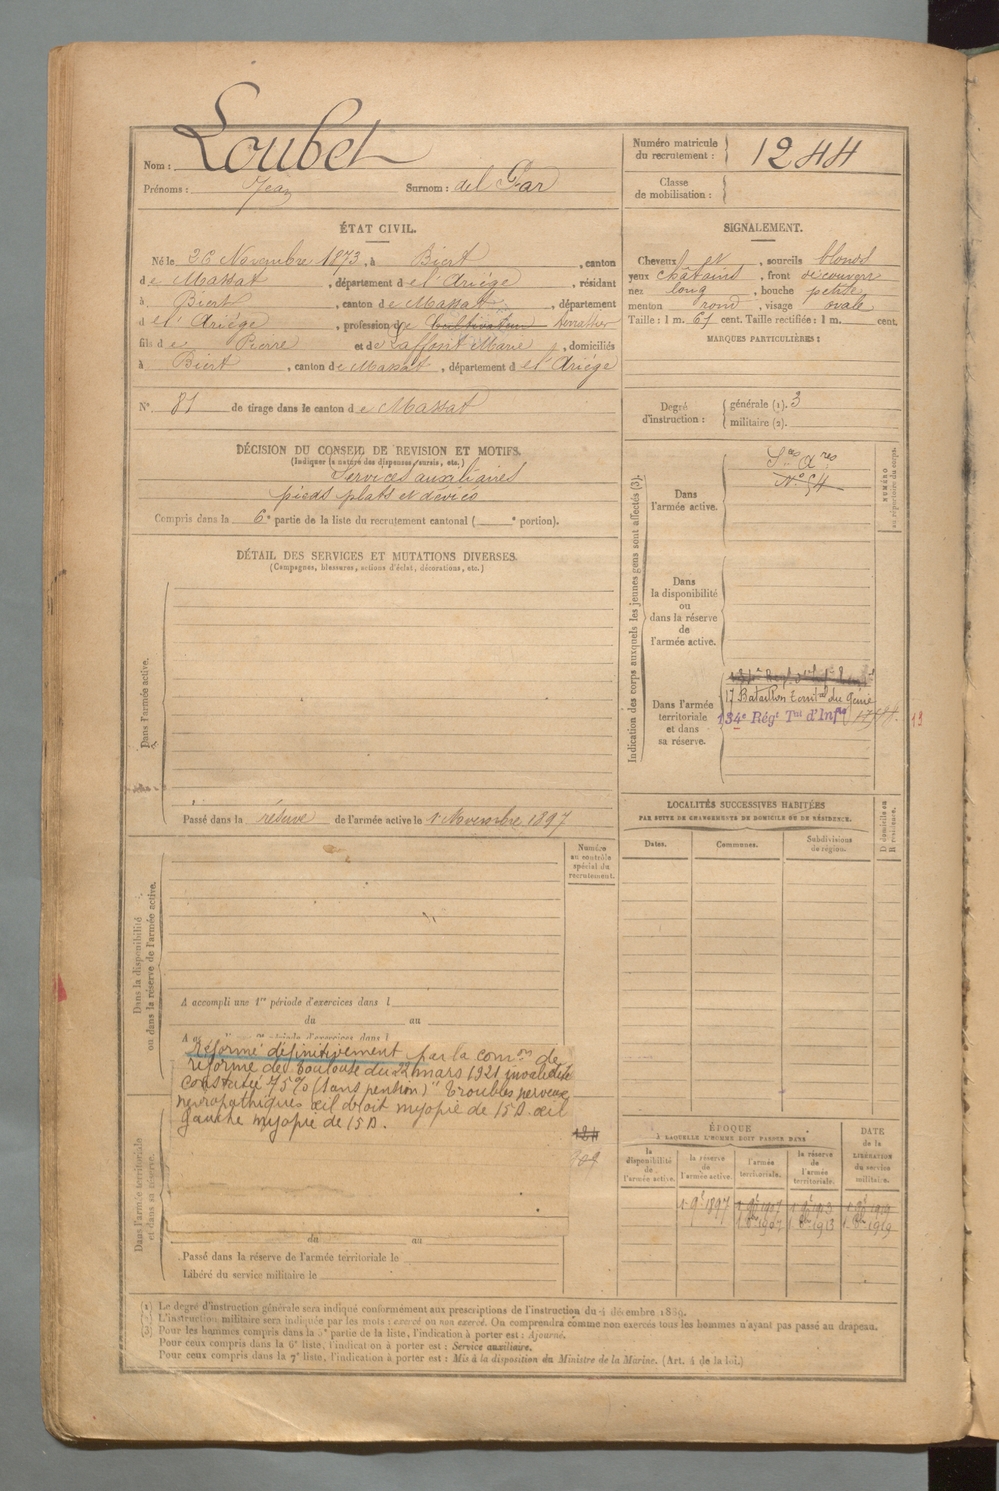 Nom : Loubet
Prénoms : Jean Surnom : del Gar
Numéro matricule du recrutement : 1244
Classe de mobilisation :
ÉTAT CIVIL.
Né le 26 Novembre 1873, à Biert, canton
de Massat, département de l'Ariège, résidant
à Biert, canton de Massat, département
de l'Ariège, profession de cultivateur
fils de Pierre et de Laffont Marie, domiciliés
à Biert, canton de Massat, département de l'Ariége
N° 81 de tirage dans le canton de Massat
SIGNALEMENT.
Cheveux et, sourcils blonds
yeux châtains, front découvert
nez long, bouche petite
menton rond, visage ovale
Taille : 1 m. 61 cent. Taille rectifiée : 1 m. cent.
MARQUES PARTICULIÈRES :
Degré d'instruction : générale (1). 3
militaire (2).
DÉCISION DU CONSEIL DE REVISION ET MOTIFS.
(Indiquer la nature des dispenses, sursis, etc.)
Services auxiliaires
pieds plats et deviés
Compris dans la 6e partie de la liste du recrutement cantonal ( e portion).
DÉTAIL DES SERVICES ET MUTATIONS DIVERSES.
(Campagnes, blessures, actions d'éclat, décorations, etc.)
Dans l'armée active.
Passé dans la réserve de l'armée active le 1 Novembre 1897
Indication des corps auxquels les jeunes gens sont affectés (3).
NUMÉRO au répertoire du corps.
Dans l'armée active.
Ses Ares
N° 54
Dans la disponibilité ou dans la réserve de l'armée active.
Dans l'armée territoriale et dans sa réserve.
17 Bataillon territal du Génie
134e Régt Tal d'Infie
13
LOCALITÉS SUCCESSIVES HABITÉES
PAR SUITE DE CHANGEMENTS DE DOMICILE OU DE RÉSIDENCE.
D domicile ou R résidence.
Dates. Communes. Subdivisions de région.
Numéro au contrôle spécial du recrutement.
Dans la disponibilité ou dans la réserve de l'armée active.
A accompli une 1re période d'exercices dans l
du au
Réformé définitivement par la comon de
réforme de Toulouse du 22 mars 1921 invalidité
constatée 75% (sans pension) "Troubles nerveux
nevropathiques œil droit myopie de 15 D. œil
gauche myopie de 15 D.
124
Dans l'armée territoriale et dans sa réserve.
du au
Passé dans la réserve de l'armée territoriale le
Libéré du service militaire le
ÉPOQUE
À LAQUELLE L'HOMME DOIT PASSER DANS
la disponibilité de l'armée active.
la réserve de l'armée active.
l'armée territoriale.
la réserve de l'armée territoriale.
DATE de la LIBÉRATION du service militaire.
1 9e 1897 1 9e 1907 1 9e 1913 1 9e 1919
1 8e 1907 1 8e 1913 1 8e 1919
(1) Le degré d'instruction générale sera indiqué conformément aux prescriptions de l'instruction du 4 décembre 1889.
(2) L'instruction militaire sera indiquée par les mots : exercé ou non exercé. On comprendra comme non exercés tous les hommes n'ayant pas passé au drapeau.
(3) Pour les hommes compris dans la 5e partie de la liste, l'indication à porter est : Ajourné.
Pour ceux compris dans la 6e liste, l'indication à porter est : Service auxiliaire.
Pour ceux compris dans la 7e liste, l'indication à porter est : Mis à la disposition du Ministre de la Marine. (Art. 4 de la loi.)